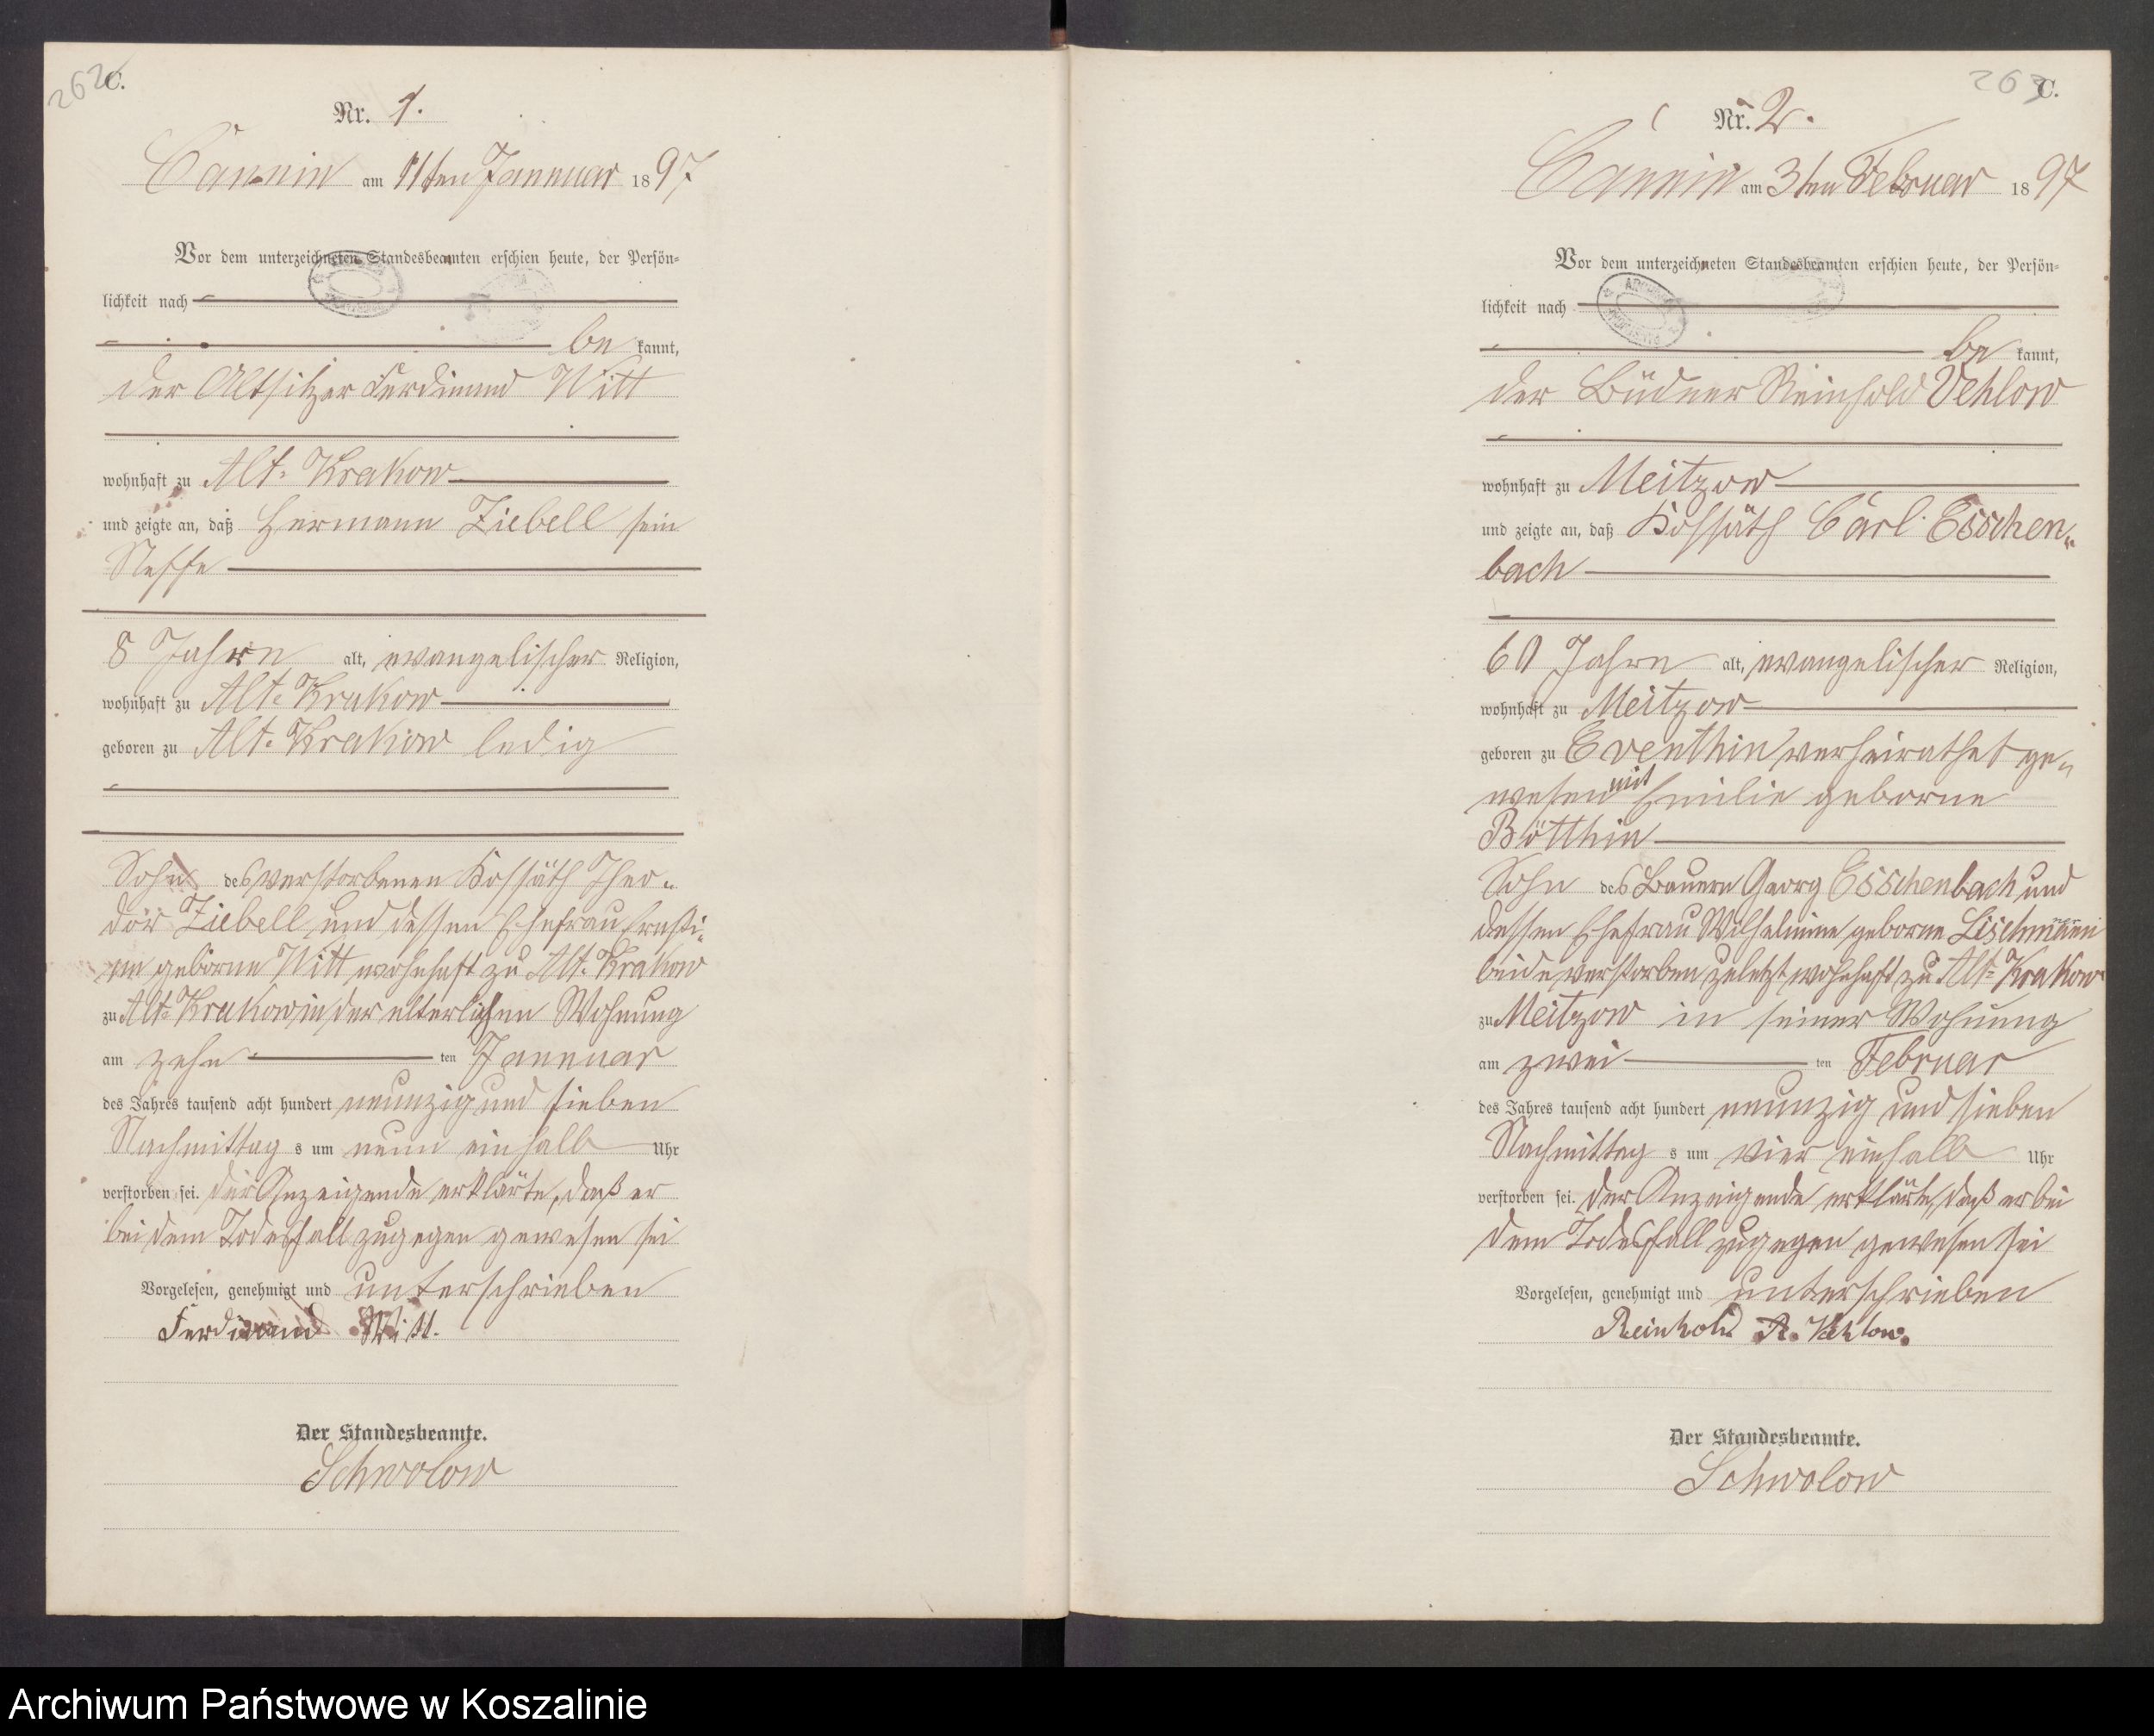 262
C.
Nr. 1.
Cannin am 11ten Jannuar 1897
Vor dem unterzeichneten Standesbeamten erschien heute, der Persön=
lichkeit nach
be kannt,
der Altsitzer Ferdinand Witt
wohnhaft zu Alt=Krakow
und zeigte an, daß Hermann Ziebell sein
Neffe
8 Jahre alt, evangelischer Religion,
wohnhaft zu Alt=Krakow
geboren zu Alt=Krakow ledig
Sohn des verstorbenen Kossäth Theo=
dor Ziebell und dessen Ehefrau Ernsti=
ne geborne Witt wohnhaft zu Alt=Krakow
zu Alt=Krakow in der elterlichen Wohnung
am zehn ten Jannuar
des Jahres tausend acht hundert neunzig und sieben
Nachmittag s um neun einhalb Uhr
verstorben sei. Der Anzeigende erklärte, daß er
bei dem Todesfall zugegen gewesen sei
Vorgelesen, genehmigt und unterschrieben
Ferdinand Witt.
Der Standesbeamte.
Schwolow
263
C.
Nr. 2.
Cannin am 3ten Februar 1897
Vor dem unterzeichneten Standesbeamten erschien heute, der Persön=
lichkeit nach
be kannt,
der Büdner Reinhold Vehlow
wohnhaft zu Meitzow
und zeigte an, daß Kossäth Carl Esschen=
bach
60 Jahre alt, evangelischer Religion,
wohnhaft zu Meitzow
geboren zu Eventhin verheirathet ge=
wesen mit Emilie geborne
Bötthin
Sohn des Bauern Georg Esschenbach und
dessen Ehefrau Wilhelmine geborne Lischmann
beide verstorben zuletzt wohnhaft zu Alt=Krakow
zu Meitzow in seiner Wohnung
am zwei ten Februar
des Jahres tausend acht hundert neunzig und sieben
Nachmittag s um vier einhalb Uhr
verstorben sei. Der Anzeigende erklärte, daß er bei
dem Todesfall zugegen gewesen sei
Vorgelesen, genehmigt und unterschrieben
Reinhold R. Vehlow.
Der Standesbeamte.
Schwolow
Archiwum Państwowe w Koszalinie